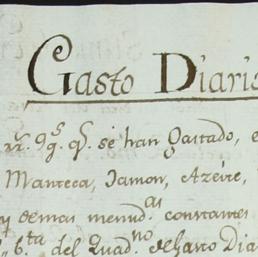 Gasto Diario
qs. qe. se han gastado, e
Manteca, Jamon, Azeite,
y demas menud.as constantes
6.ta del Quad.no de Gasto Dia